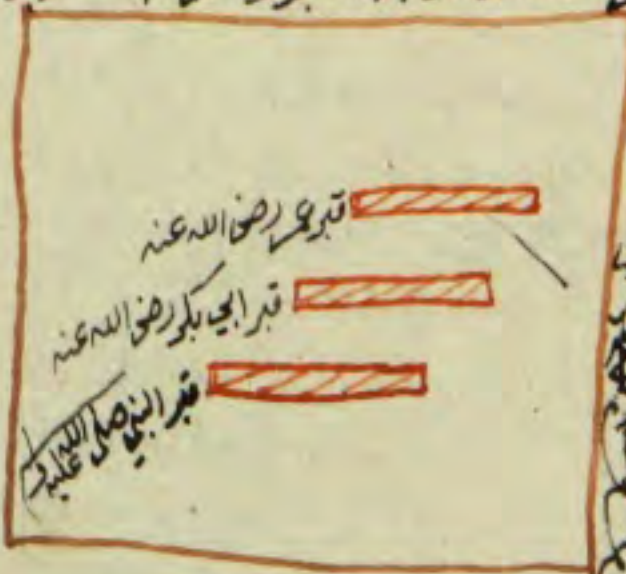 قبر عمر رضى الله عنه
قبر ابي بكر رضى الله عنه
قبر النبي صلى الله عليه و